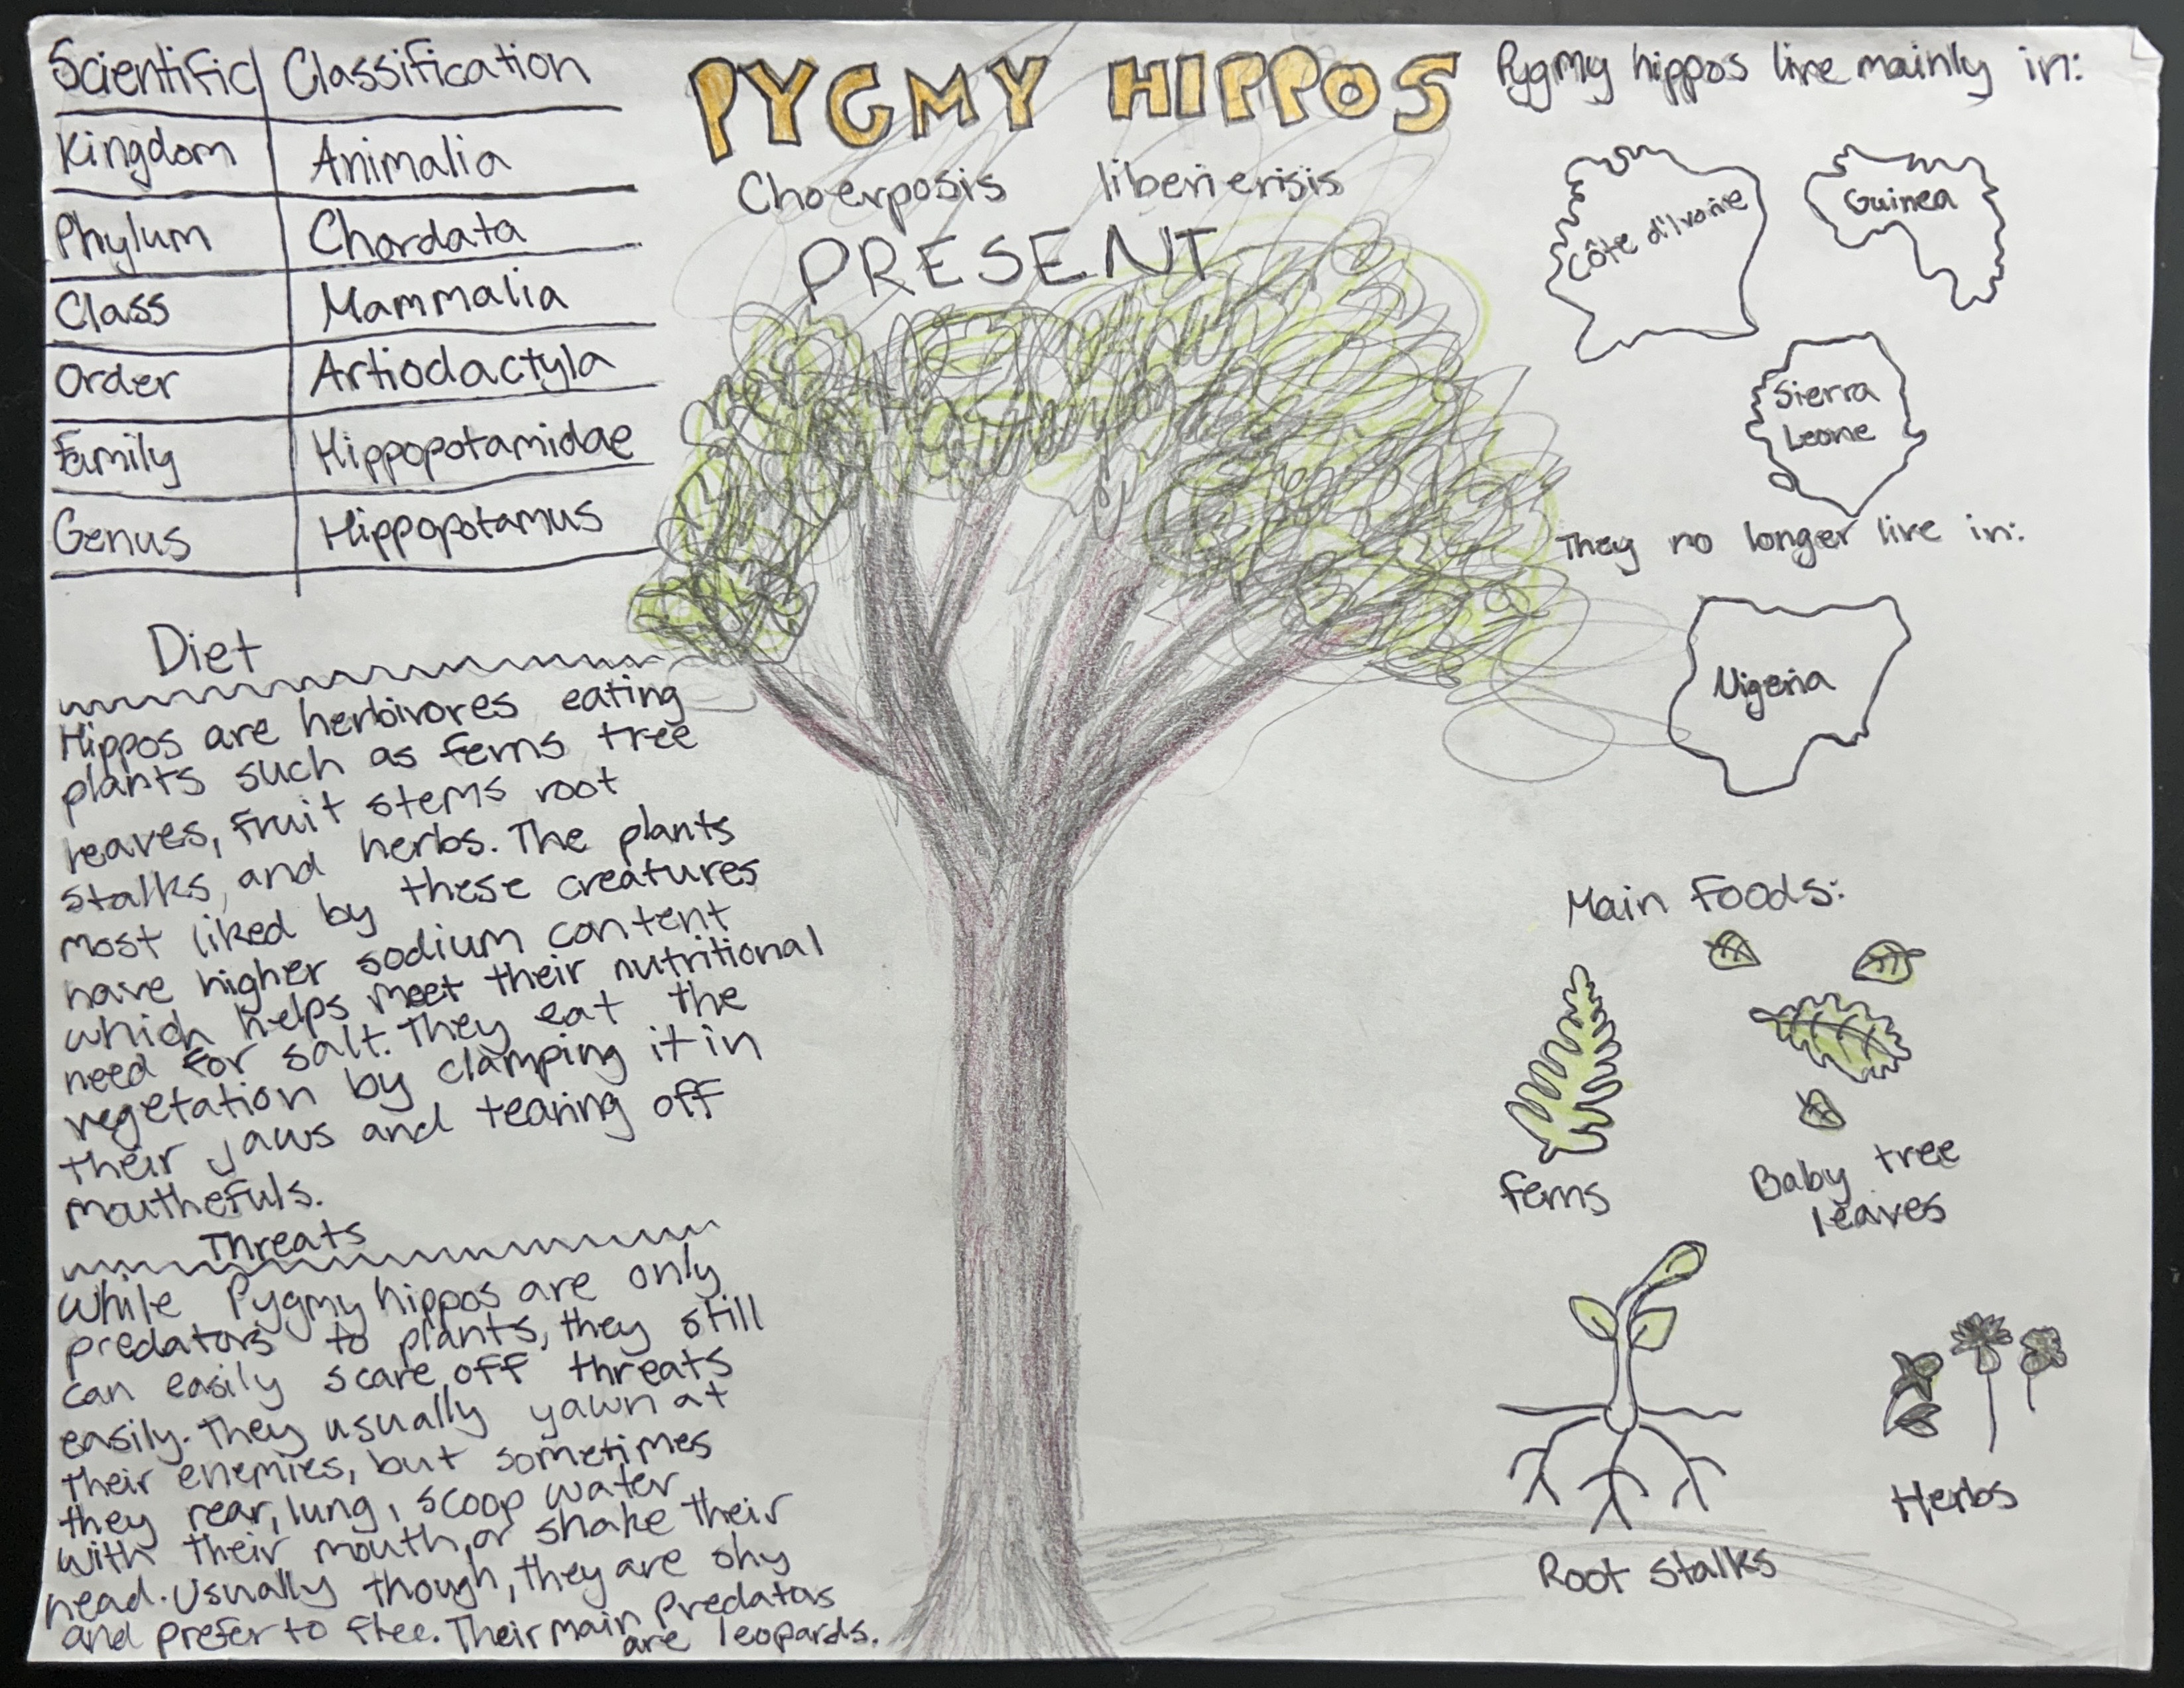 PYGMY HIPPOS
Choerposis liberiensis
PRESENT
Scientific Classification
Kingdom Animalia
Phylum Chordata
Class Mammalia
Order Artiodactyla
Family Hippopotamidae
Genus Hippopotamus
Diet
Hippos are herbivores eating
plants such as ferns tree
leaves, fruit stems root
stalks, and herbs. The plants
most liked by these creatures
have higher sodium content
which helps meet their nutritional
need for salt. They eat the
vegetation by clamping it in
their jaws and tearing off
mouthefuls.
Threats
While Pygmy hippos are only
predators to plants, they still
can easily scare off threats
easily. They usually yawn at
their enemies, but sometimes
they rear, lung, scoop water
with their mouth, or shake their
head. Usually though, they are shy
and prefer to flee. Their main predators
are leopards.
Pygmy hippos live mainly in:
Côte d'Ivoire
Guinea
Sierra
Leone
They no longer live in:
Nigeria
Main Foods:
ferns
Baby tree
leaves
Root stalks
Herbs